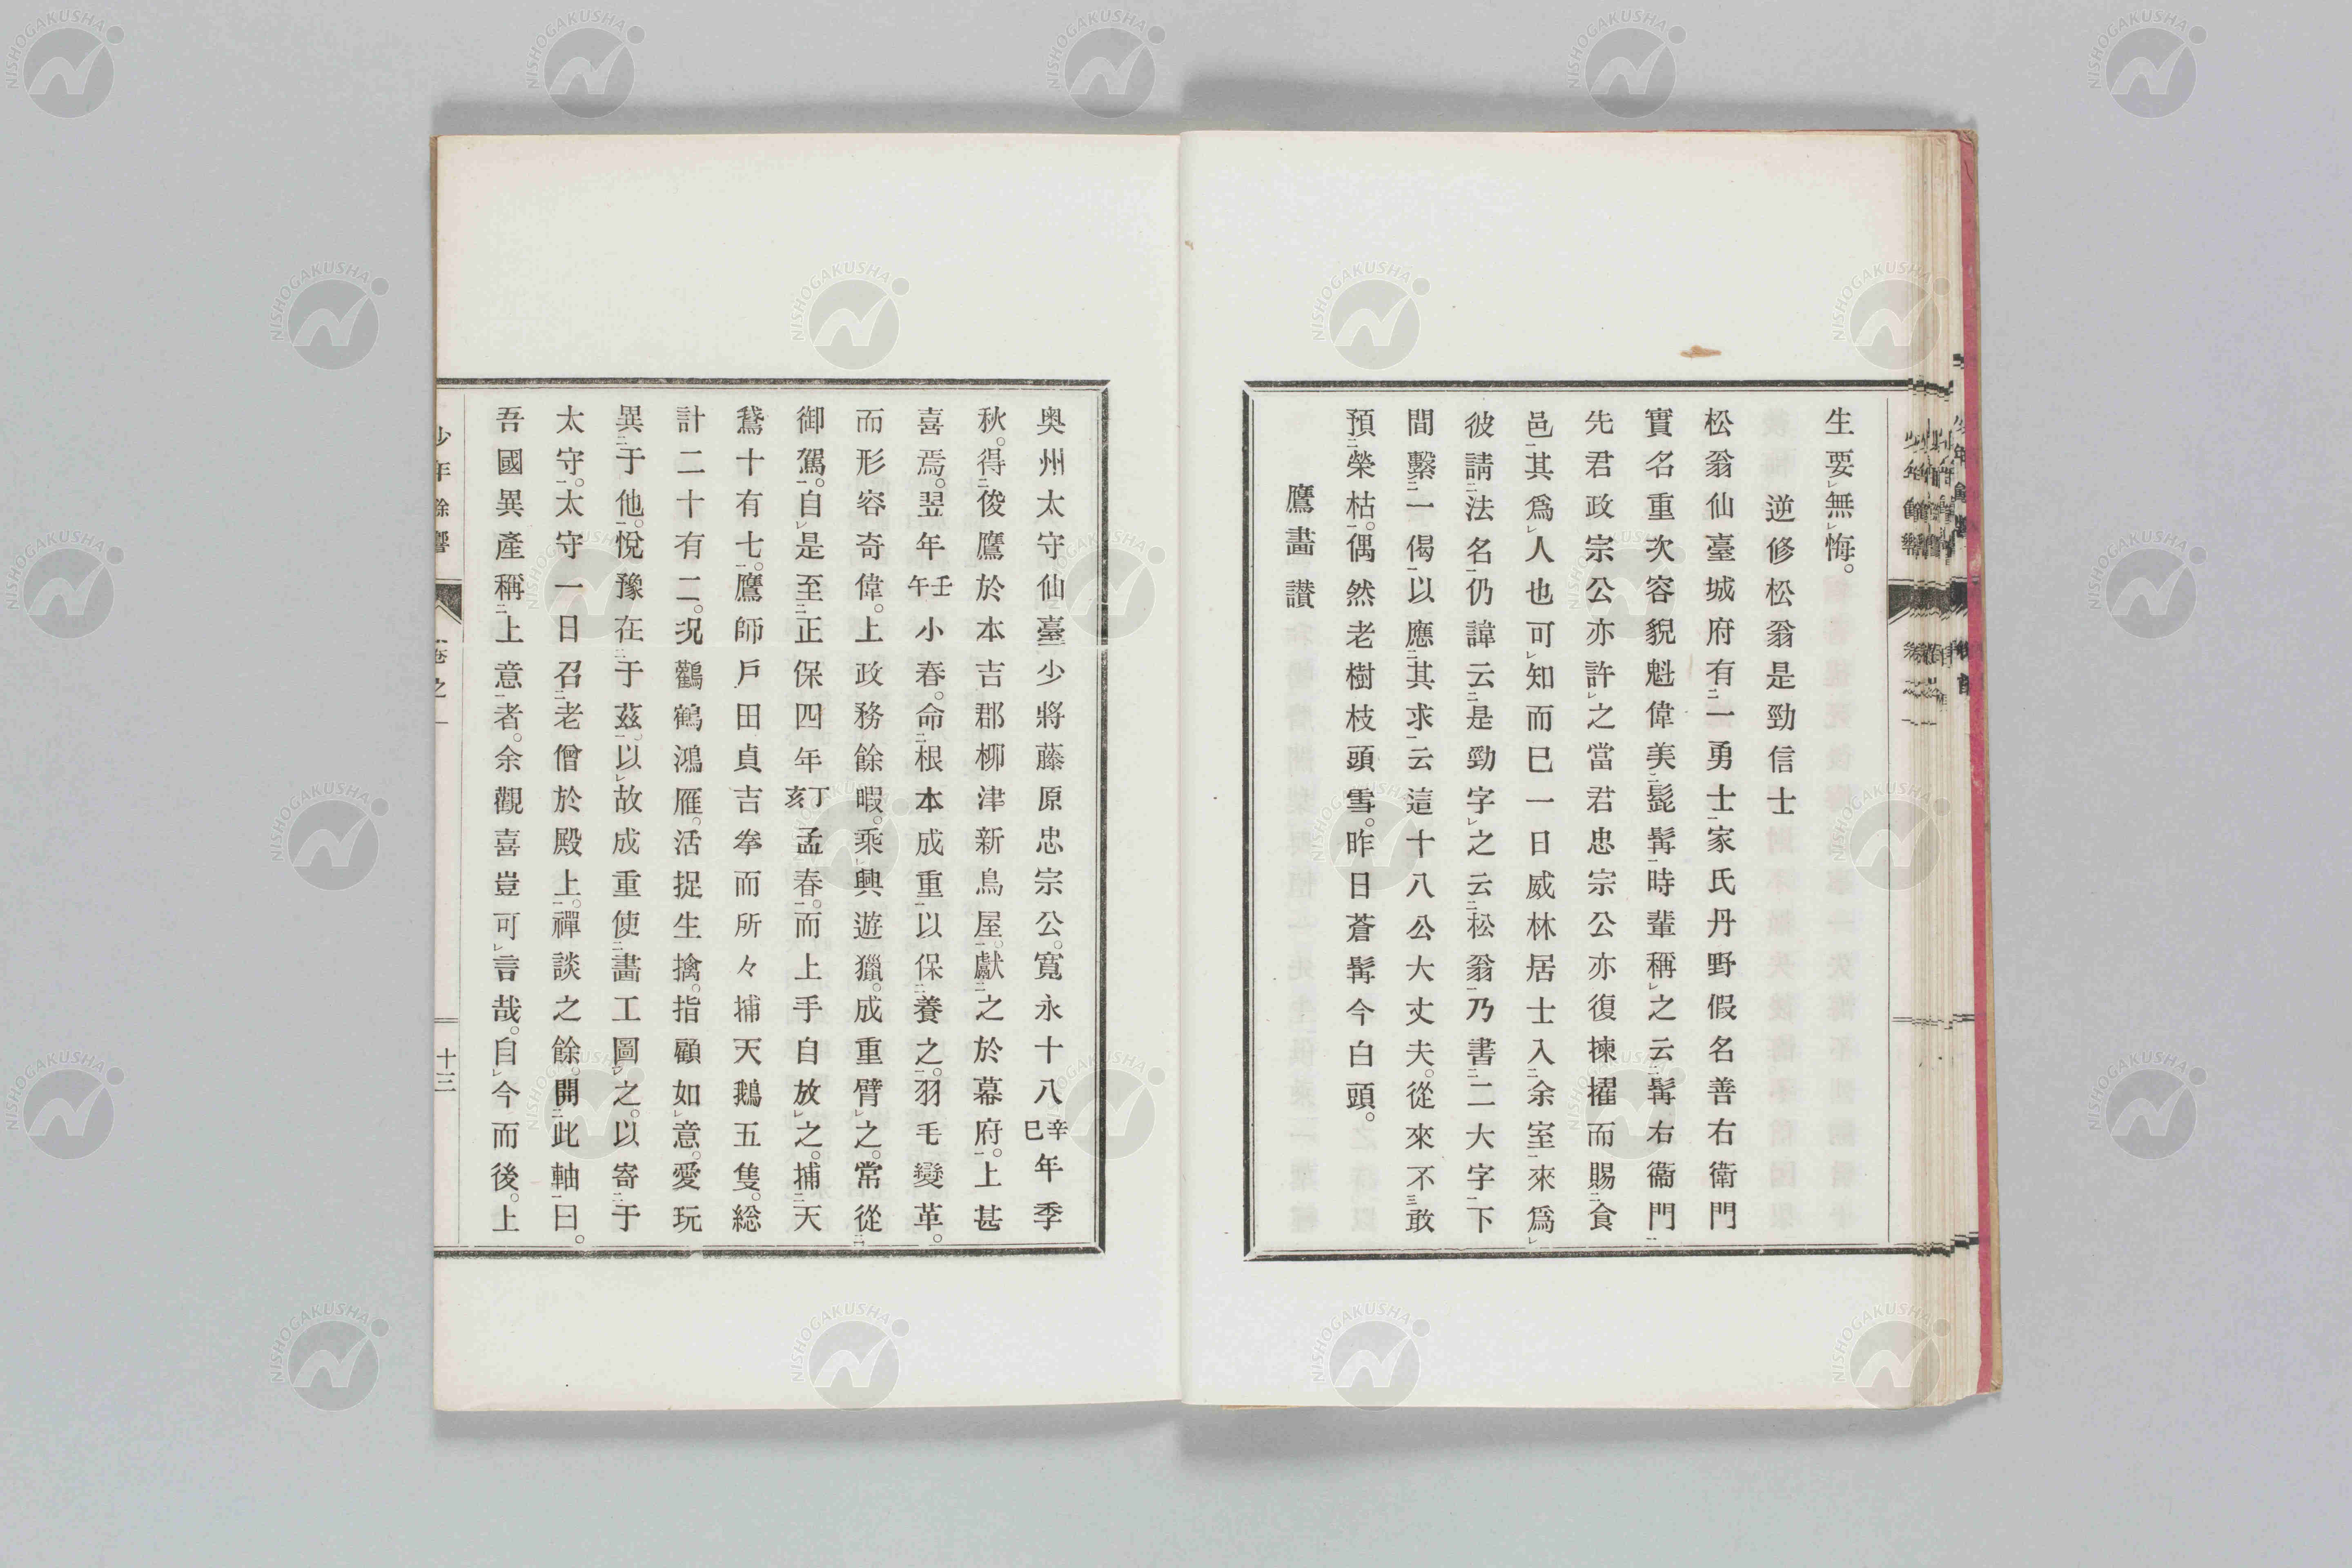 生要無悔。
逆修松翁是勁信士
松翁仙臺城府有一勇士家氏丹野假名善右衛門
實名重次容貌魁偉美髭髯時輩稱之云髯右衞門
先君政宗公亦許之當君忠宗公亦復揀擢而賜食
邑其爲人也可知而已一日威林居士入余室來爲
彼請法名仍諱云是勁字之云松翁乃書二大字下
間繫一偈以應其求云這十八公大丈夫。從來不敢
預榮枯。偶然老樹枝頭雪。昨日蒼髯今白頭。
鷹畫讃
奥州太守仙臺少將藤原忠宗公。寬永十八辛巳年季
秋。得俊鷹於本吉郡柳津新鳥屋。獻之於幕府。上甚
喜焉。翌年壬午小春。命根本成重以保養之。羽毛變革。
而形容奇偉。上政務餘暇。乘興遊獵。成重臂之。常從
御駕。自是至正保四年丁亥孟春。而上手自放之。捕天
鵞十有七。鷹師戶田貞吉拳而所々捕天鵝五隻。総
計二十有二。况鸛鶴鴻雁。活捉生擒。指顧如意。愛玩
異于他。悅豫在于茲。以故成重使畫工圖之。以寄于
太守。太守一日召老僧於殿上。禪談之餘。開此軸曰。
吾國異產稱上意者。余觀喜豈可言哉。自今而後。上
少年餘響
卷之一
十三
NISHOGAKUSHA